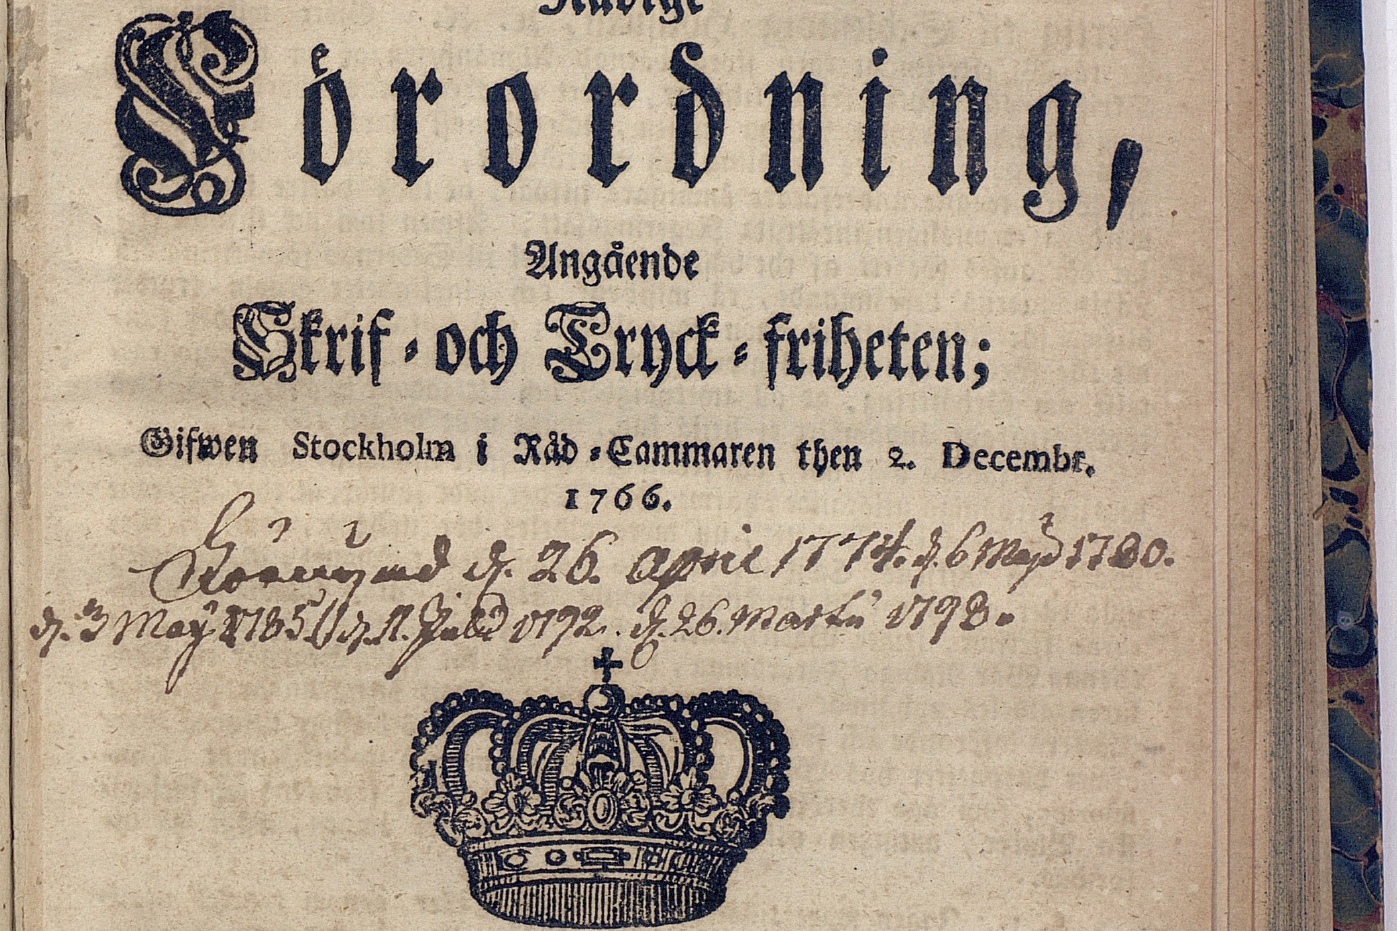 Nådige
Förordning,
Angående
Skrif- och Tryck-friheten;
Gifwen Stockholm i Råd-Cammaren then 2. Decembr.
1766.
d. 26. April 1774. d. 6 Maji 1780.
d. 3 Maij 1785 d. 11. Julii 1792. d. 26. Martii 1798.